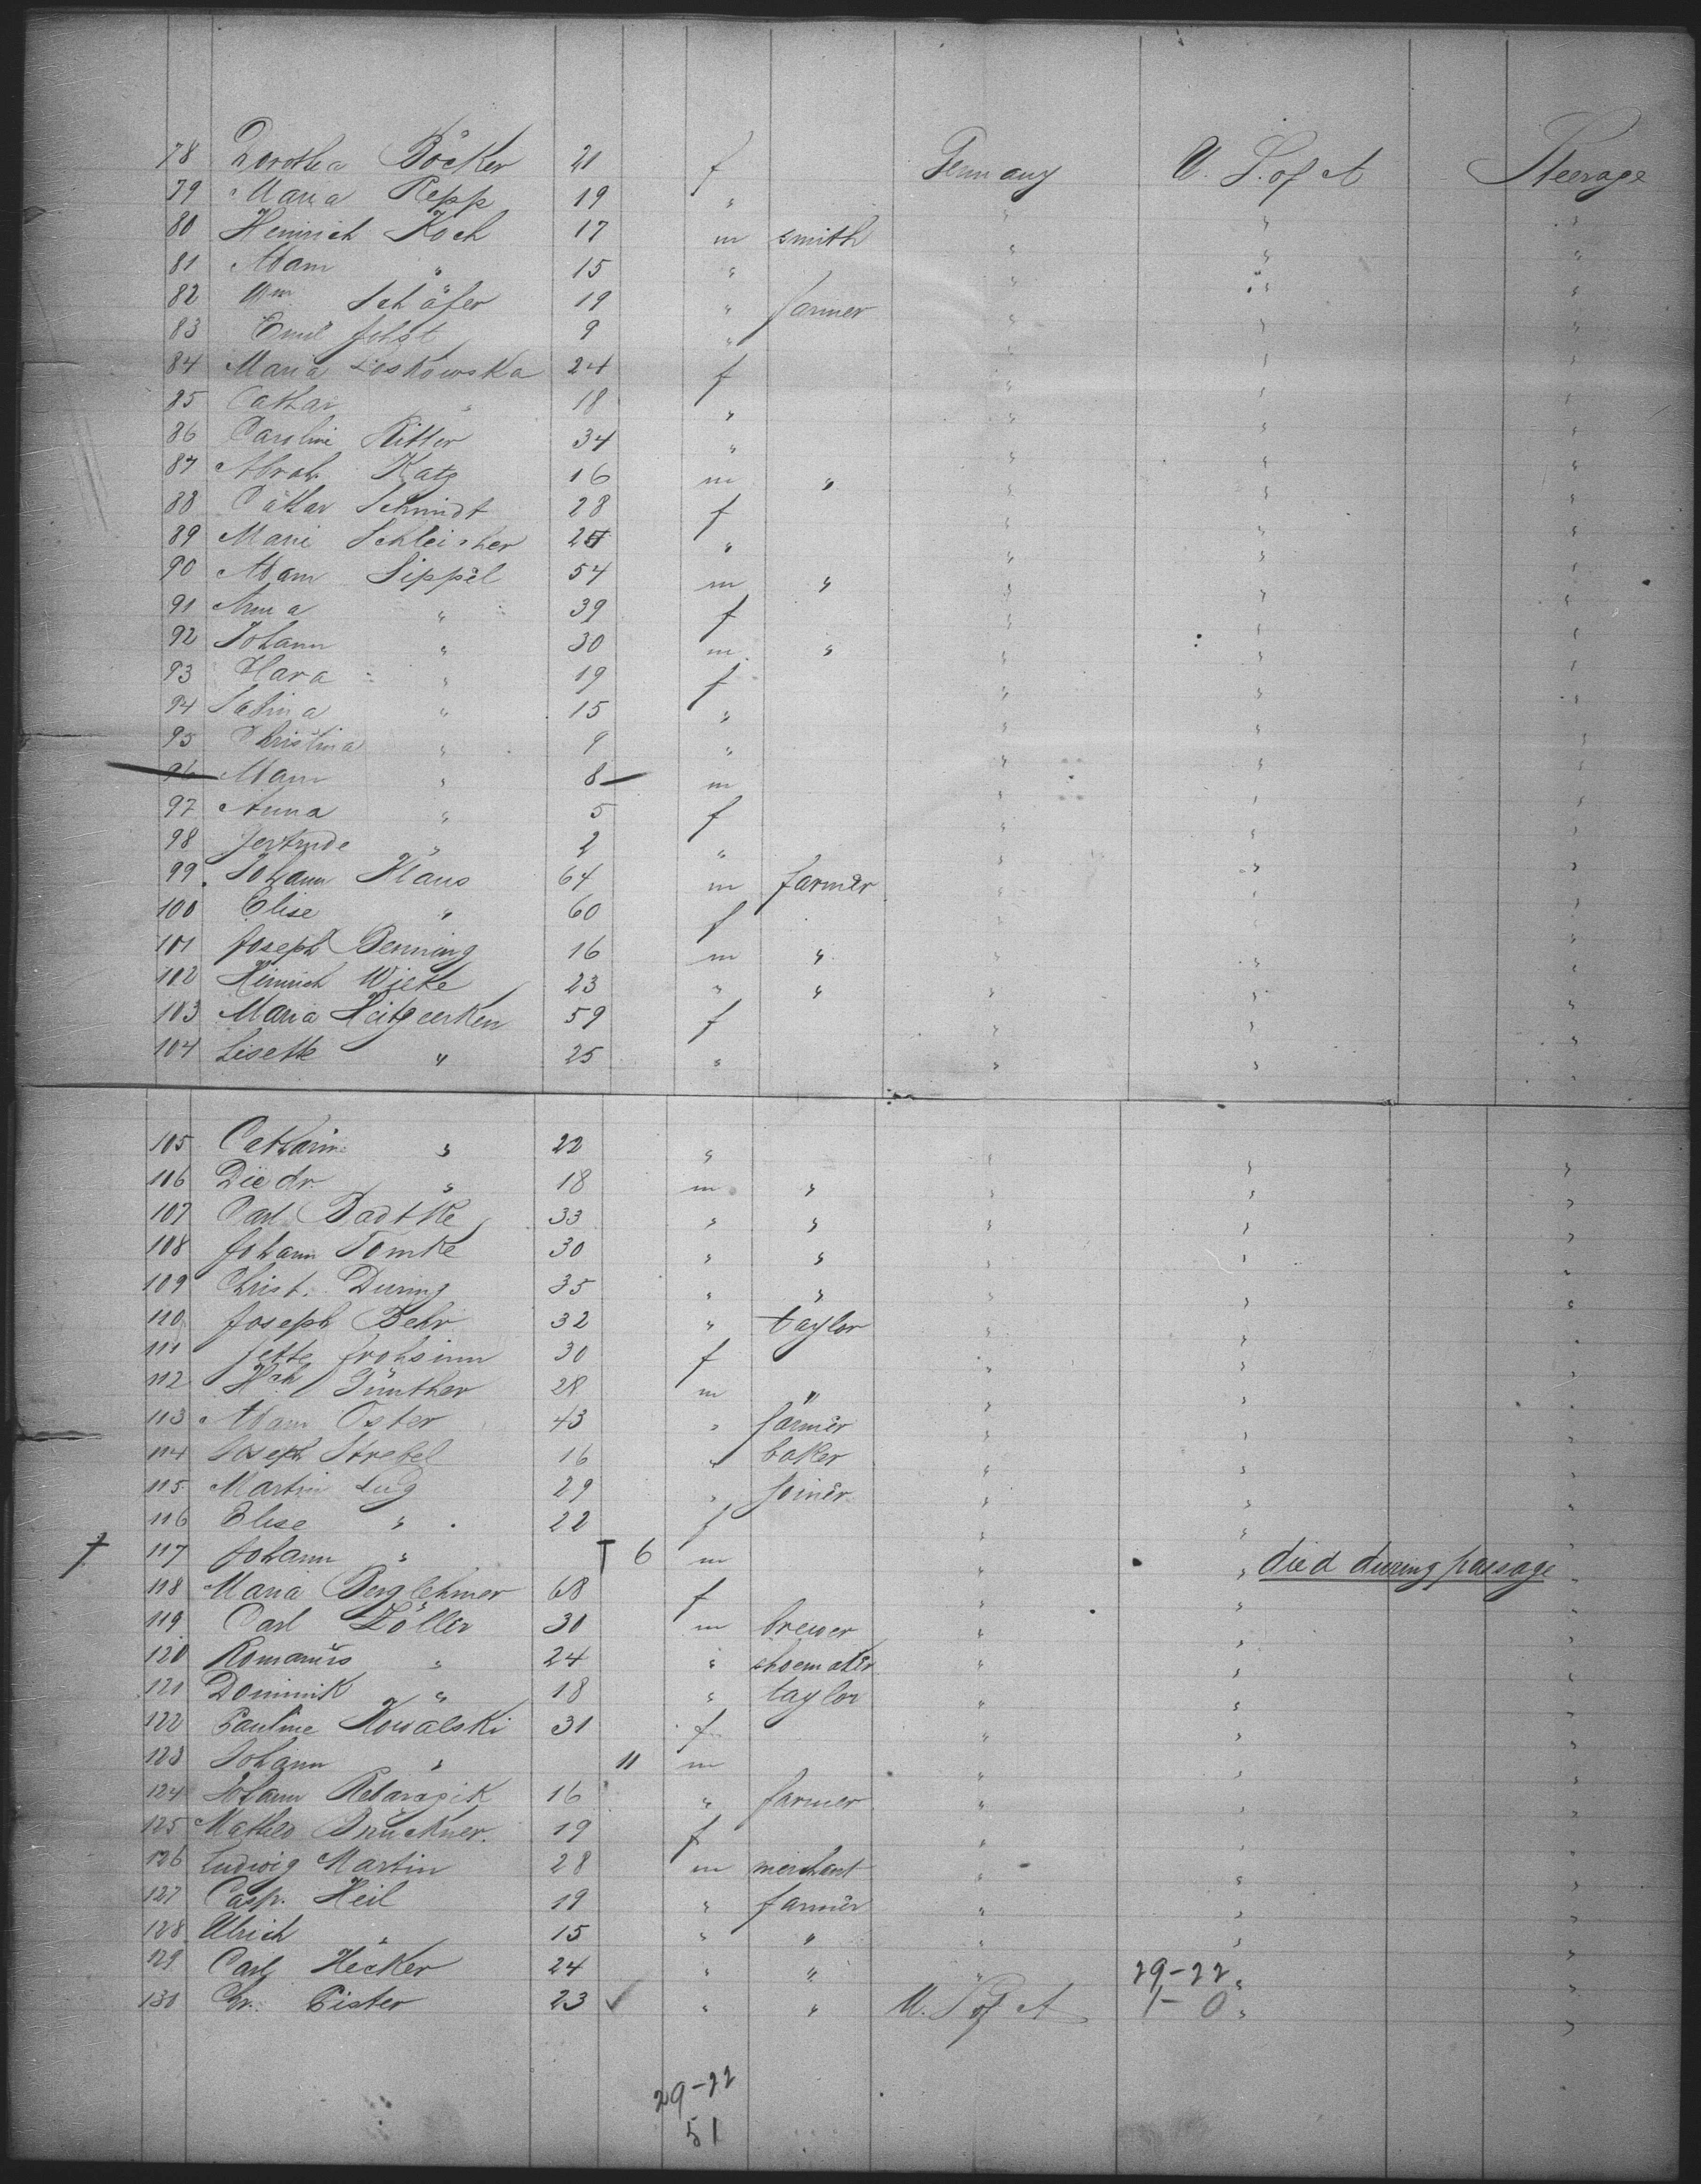 78 Dorothea Böcker 21 f Germany U. S. of A Steerage
79 Maria Repp 19 " " " "
80 Heinrich Koch 17 m smith " " "
81 Adam " 15 " " " "
82 Wm Schäfer 19 " farmer " " "
83 Emil Jobst 9 " " " "
84 Maria Loskowska 24 f " " "
85 Cathar " 18 " " " "
86 Caroline Ritter 34 " " " "
87 Abrah Katz 16 m " " " "
88 Cathar Schmidt 28 f " " "
89 Marie Schleicher " " " "
90 Adam Sippel 54 m " " " "
91 Anna " 39 f " " "
92 Johann " 30 m " " " "
93 Clara " 19 f " " "
94 Sabina " 15 " " " "
95 Christina " 9 " " " "
96 Adam " 8 m " " "
97 Anna " 5 f " " "
98 Gertrude " 2 " " " "
99 Johann Klaus 64 m farmer " " "
100 Elise " 60 f " " "
101 Joseph Benning 16 m " " " "
102 Heinrich Wieke 23 " " " " "
103 Maria Heitgeerken 59 f " " "
104 Lisette " 25 " " " "
105 Catharin " 22 " " " "
106 Diedr. " 18 m " " " "
107 Carl Badtke 33 " " " " "
108 Johann Tomke 30 " " " " "
109 Christ. During 35 " " " " "
110 Joseph Behr 32 " taylor " " "
111 Jette Frohsinn 30 f " " "
112 Hch Günther 28 m " " " "
113 Adam Oster 43 " farmer " " "
114 Joseph Strebel 16 " baker " " "
115 Martin Lug 29 " joiner " " "
116 Elise " 22 f " " "
† 117 Johann " † 6 m " " died during passage "
118 Maria Berglehmer 68 f " " "
119 Carl Zöller 30 m brewer " " "
120 Romanus " 24 " shoemaker " " "
121 Dominik " 18 " taylor " " "
122 Pauline Kowalski 31 f " " "
123 Johann " 11 m " " "
124 Johann 16 " farmer " " "
125 Brückner. 19 f " " "
126 Ludwig Martin 28 m merchant " " "
127 Casp. Heil 19 " farmer " " "
128 Ulrich " 15 " " " " "
129 Carl Hecker 24 " " " 29-22 " "
130 Chr. Pister 23 ✓ " " U. S of A 1-0 " "
29-22
51